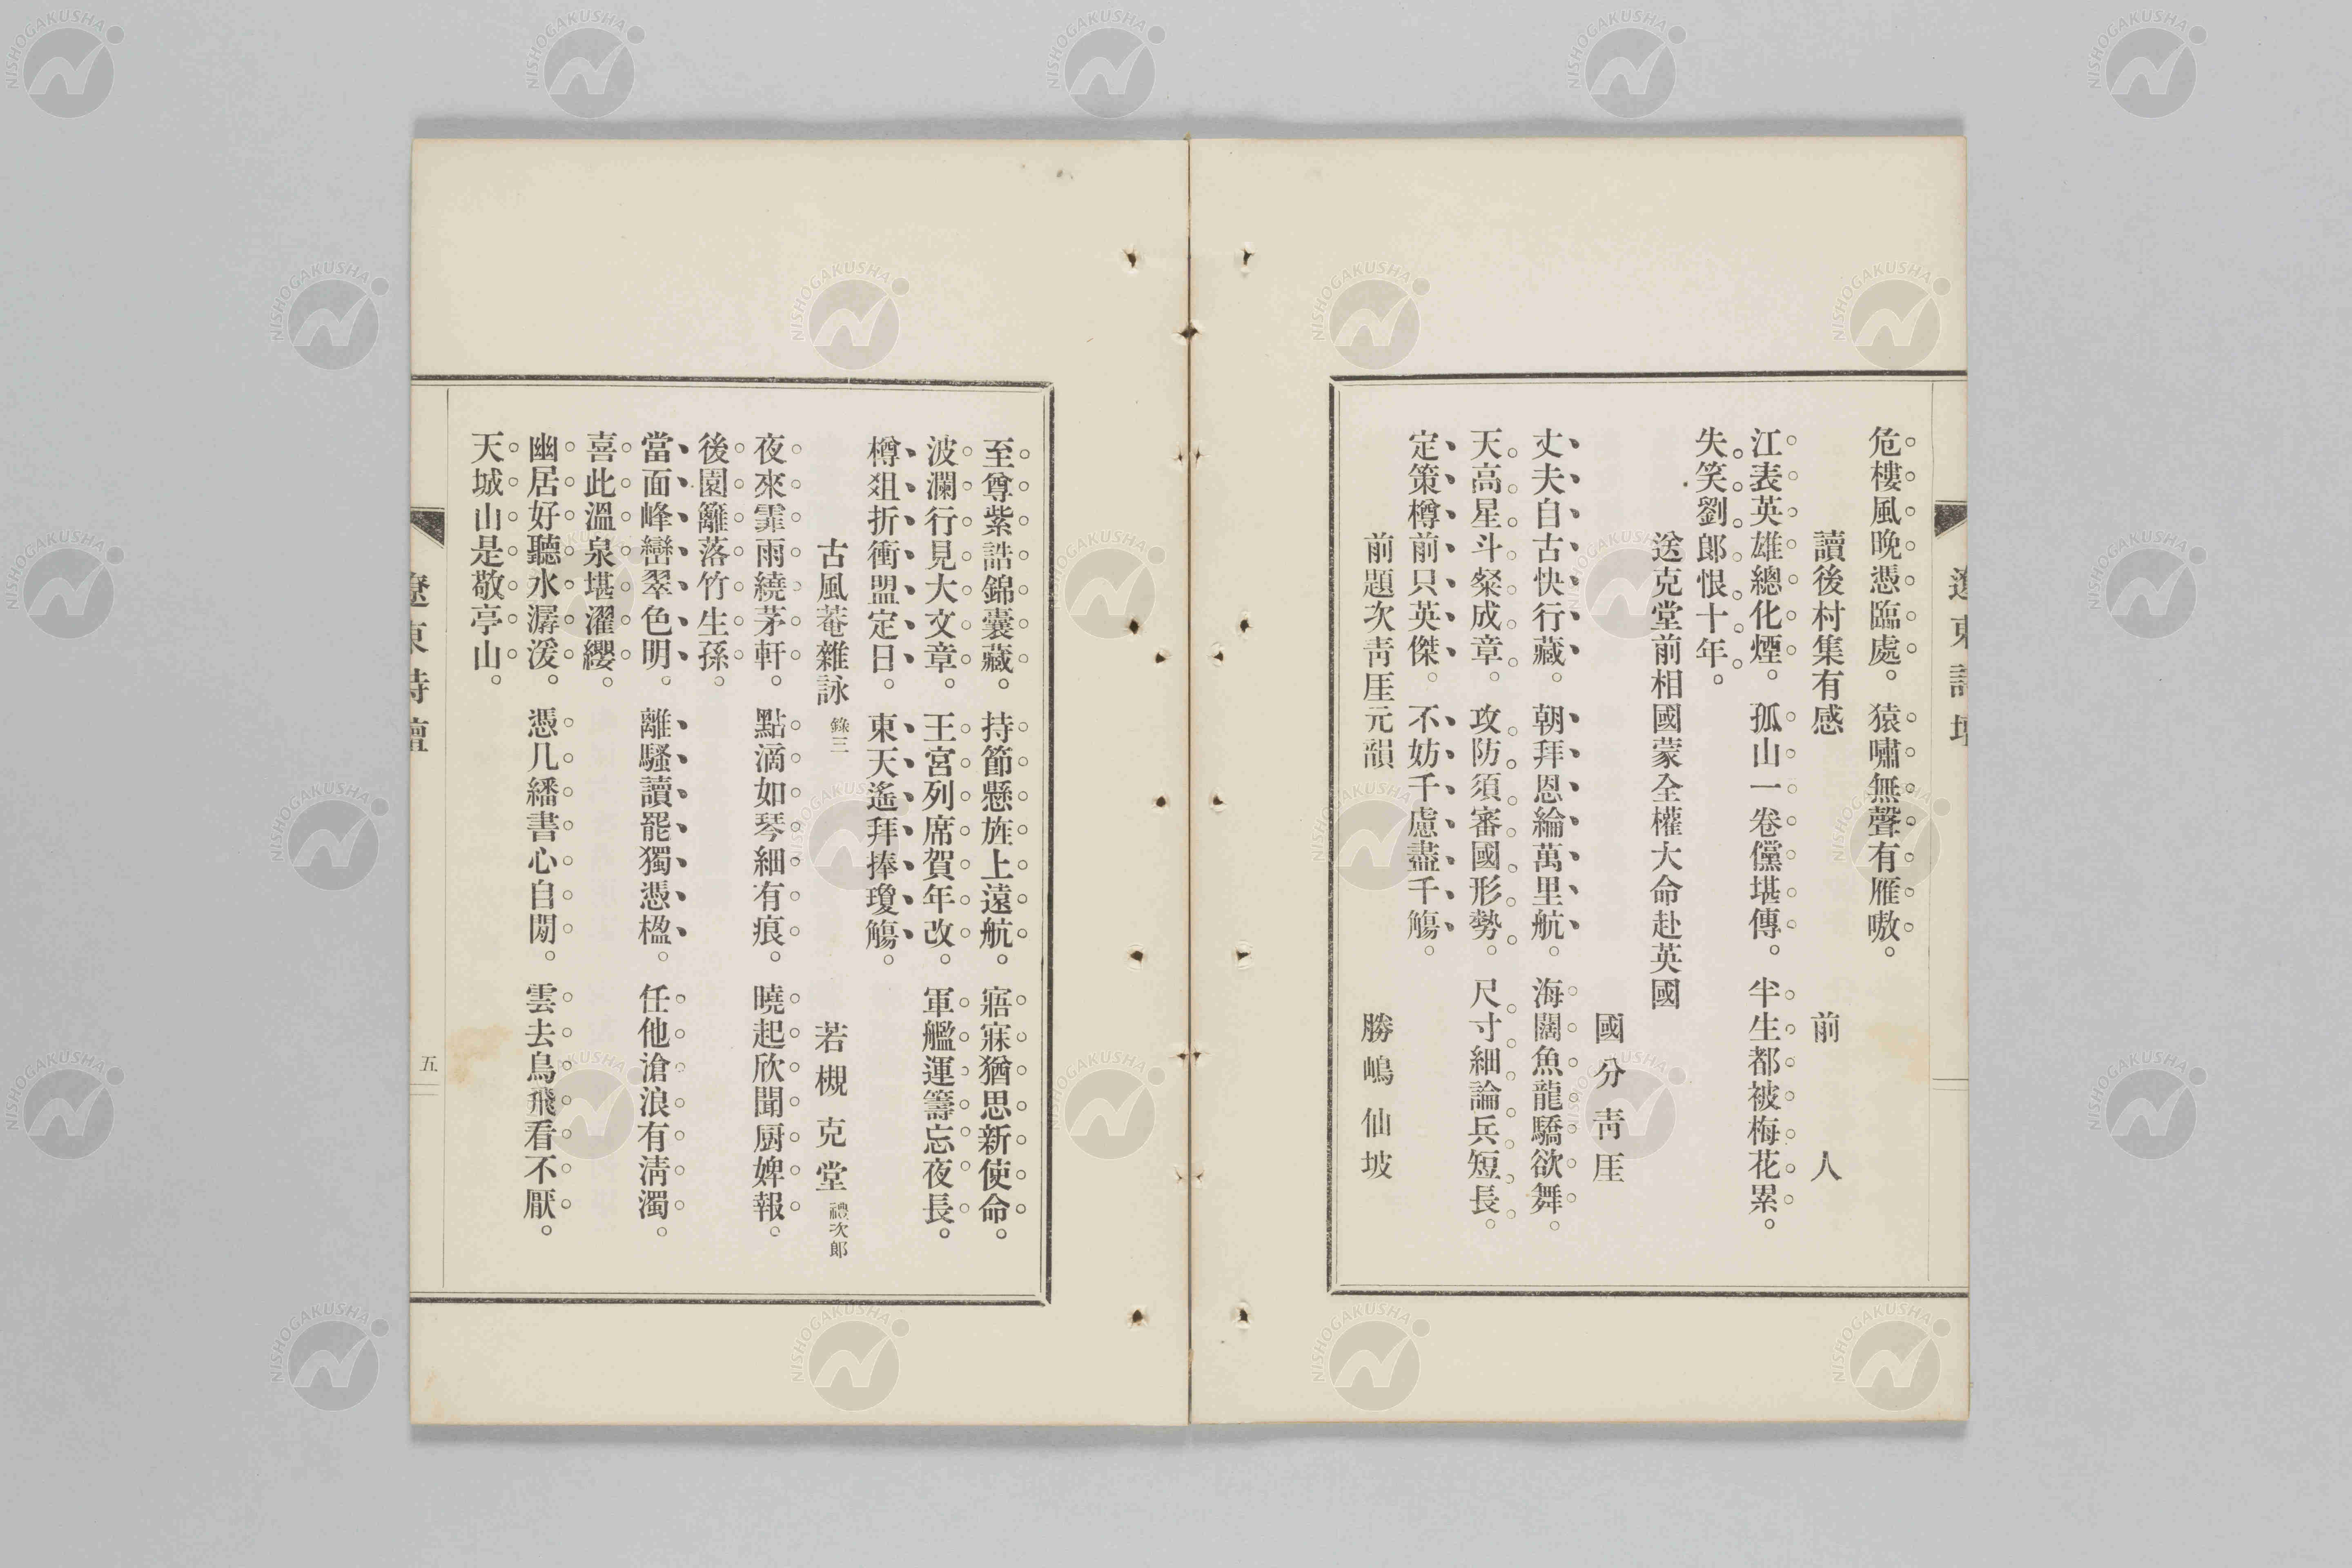 危樓風晩憑臨處。猿嘯無聲有雁嗷。
讀後村集有感　前人
江表英雄總化煙。孤山一卷儻堪傳。半生都被梅花累。
失笑劉郞恨十年。
送克堂前相國蒙全權大命赴英國
國分靑厓
丈夫自古快行藏。朝拜恩綸萬里航。海闊魚龍驕欲舞。
天高星斗粲成章。攻防須審國形勢。尺寸細論兵短長。
定策樽前只英傑。不妨千慮盡千觴。
前題次靑厓元韻　勝嶋仙坡
至尊紫誥錦囊藏。持節懸旌上遠航。寤寐猶思新使命。
波瀾行見大文章。王宮列席賀年改。軍艦運籌忘夜長。
樽俎折衝盟定日。東天遙拜捧瓊觴。
古風菴雜詠 錄三　若槻克堂 禮次郞
夜來霏雨繞茅軒。點滴如琴細有痕。曉起欣聞厨婢報。
後園籬落竹生孫。
當面峰巒翠色明。離騷讀罷獨憑楹。任他滄浪有淸濁。
喜此溫泉堪濯纓。
幽居好聽水潺湲。憑几繙書心自閑。雲去鳥飛看不厭。
天城山是敬亭山。
遼東詩壇
五
NISHOGAKUSHA